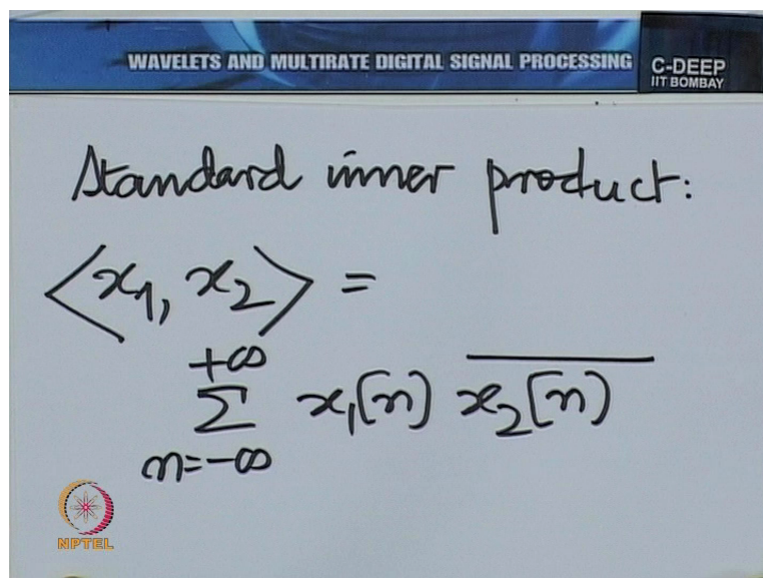 WAVELETS AND MULTIRATE DIGITAL SIGNAL PROCESSING
C-DEEP
IIT BOMBAY
Standard inner product:
⟨x₁, x₂⟩ =
+∞
Σ x₁[n] x̅₂̅[̅n̅]̅
n=-∞
NPTEL